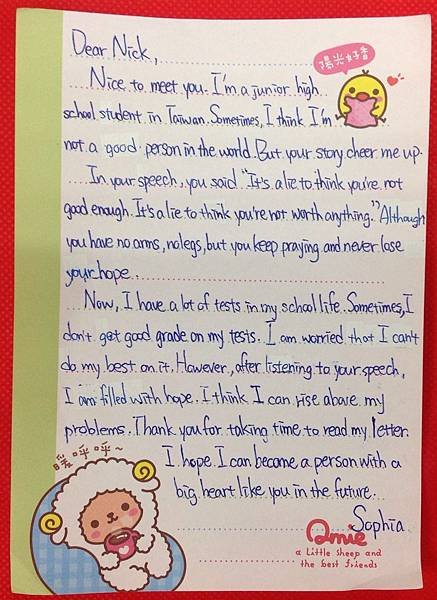 Dear Nick,
陽光好香
Nice to meet you. I'm a junior high
school student in Taiwan. Sometimes, I think I'm
not a good person in the world. But your story cheer me up.
In your speech, you said "It's a lie to think you're not
good enough. It's a lie to think you're not worth anything." Although
you have no arms, no legs, but you keep praying and never lose
your hope.
Now, I have a lot of tests in my school life. Sometimes, I
don't get good grade on my tests. I am worried that I can't
do my best on it. However, after listening to your speech,
I am filled with hope. I think I can rise above my
problems. Thank you for taking time to read my letter.
I hope I can become a person with a
big heart like you in the future.
Sophia
暖呼呼~
Amie
a little sheep and
the best friends